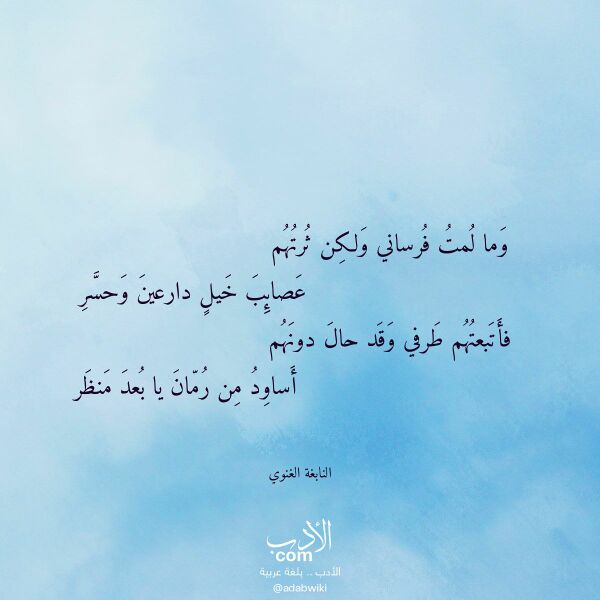 وَما لُمتُ فُرساني وَلكِن ثُرتُهُم
عَصايِبَ خَيلٍ دارعينَ وَحسَّرِ
فأَتبَعتُهُم طَرفي وَقَد حالَ دونَهُم
أَساوِدُ مِن رُمّانَ يا بُعدَ مَنظَر
النابغة الغنوي
الأدب
com
الأدب .. بلغة عربية
@adabwiki